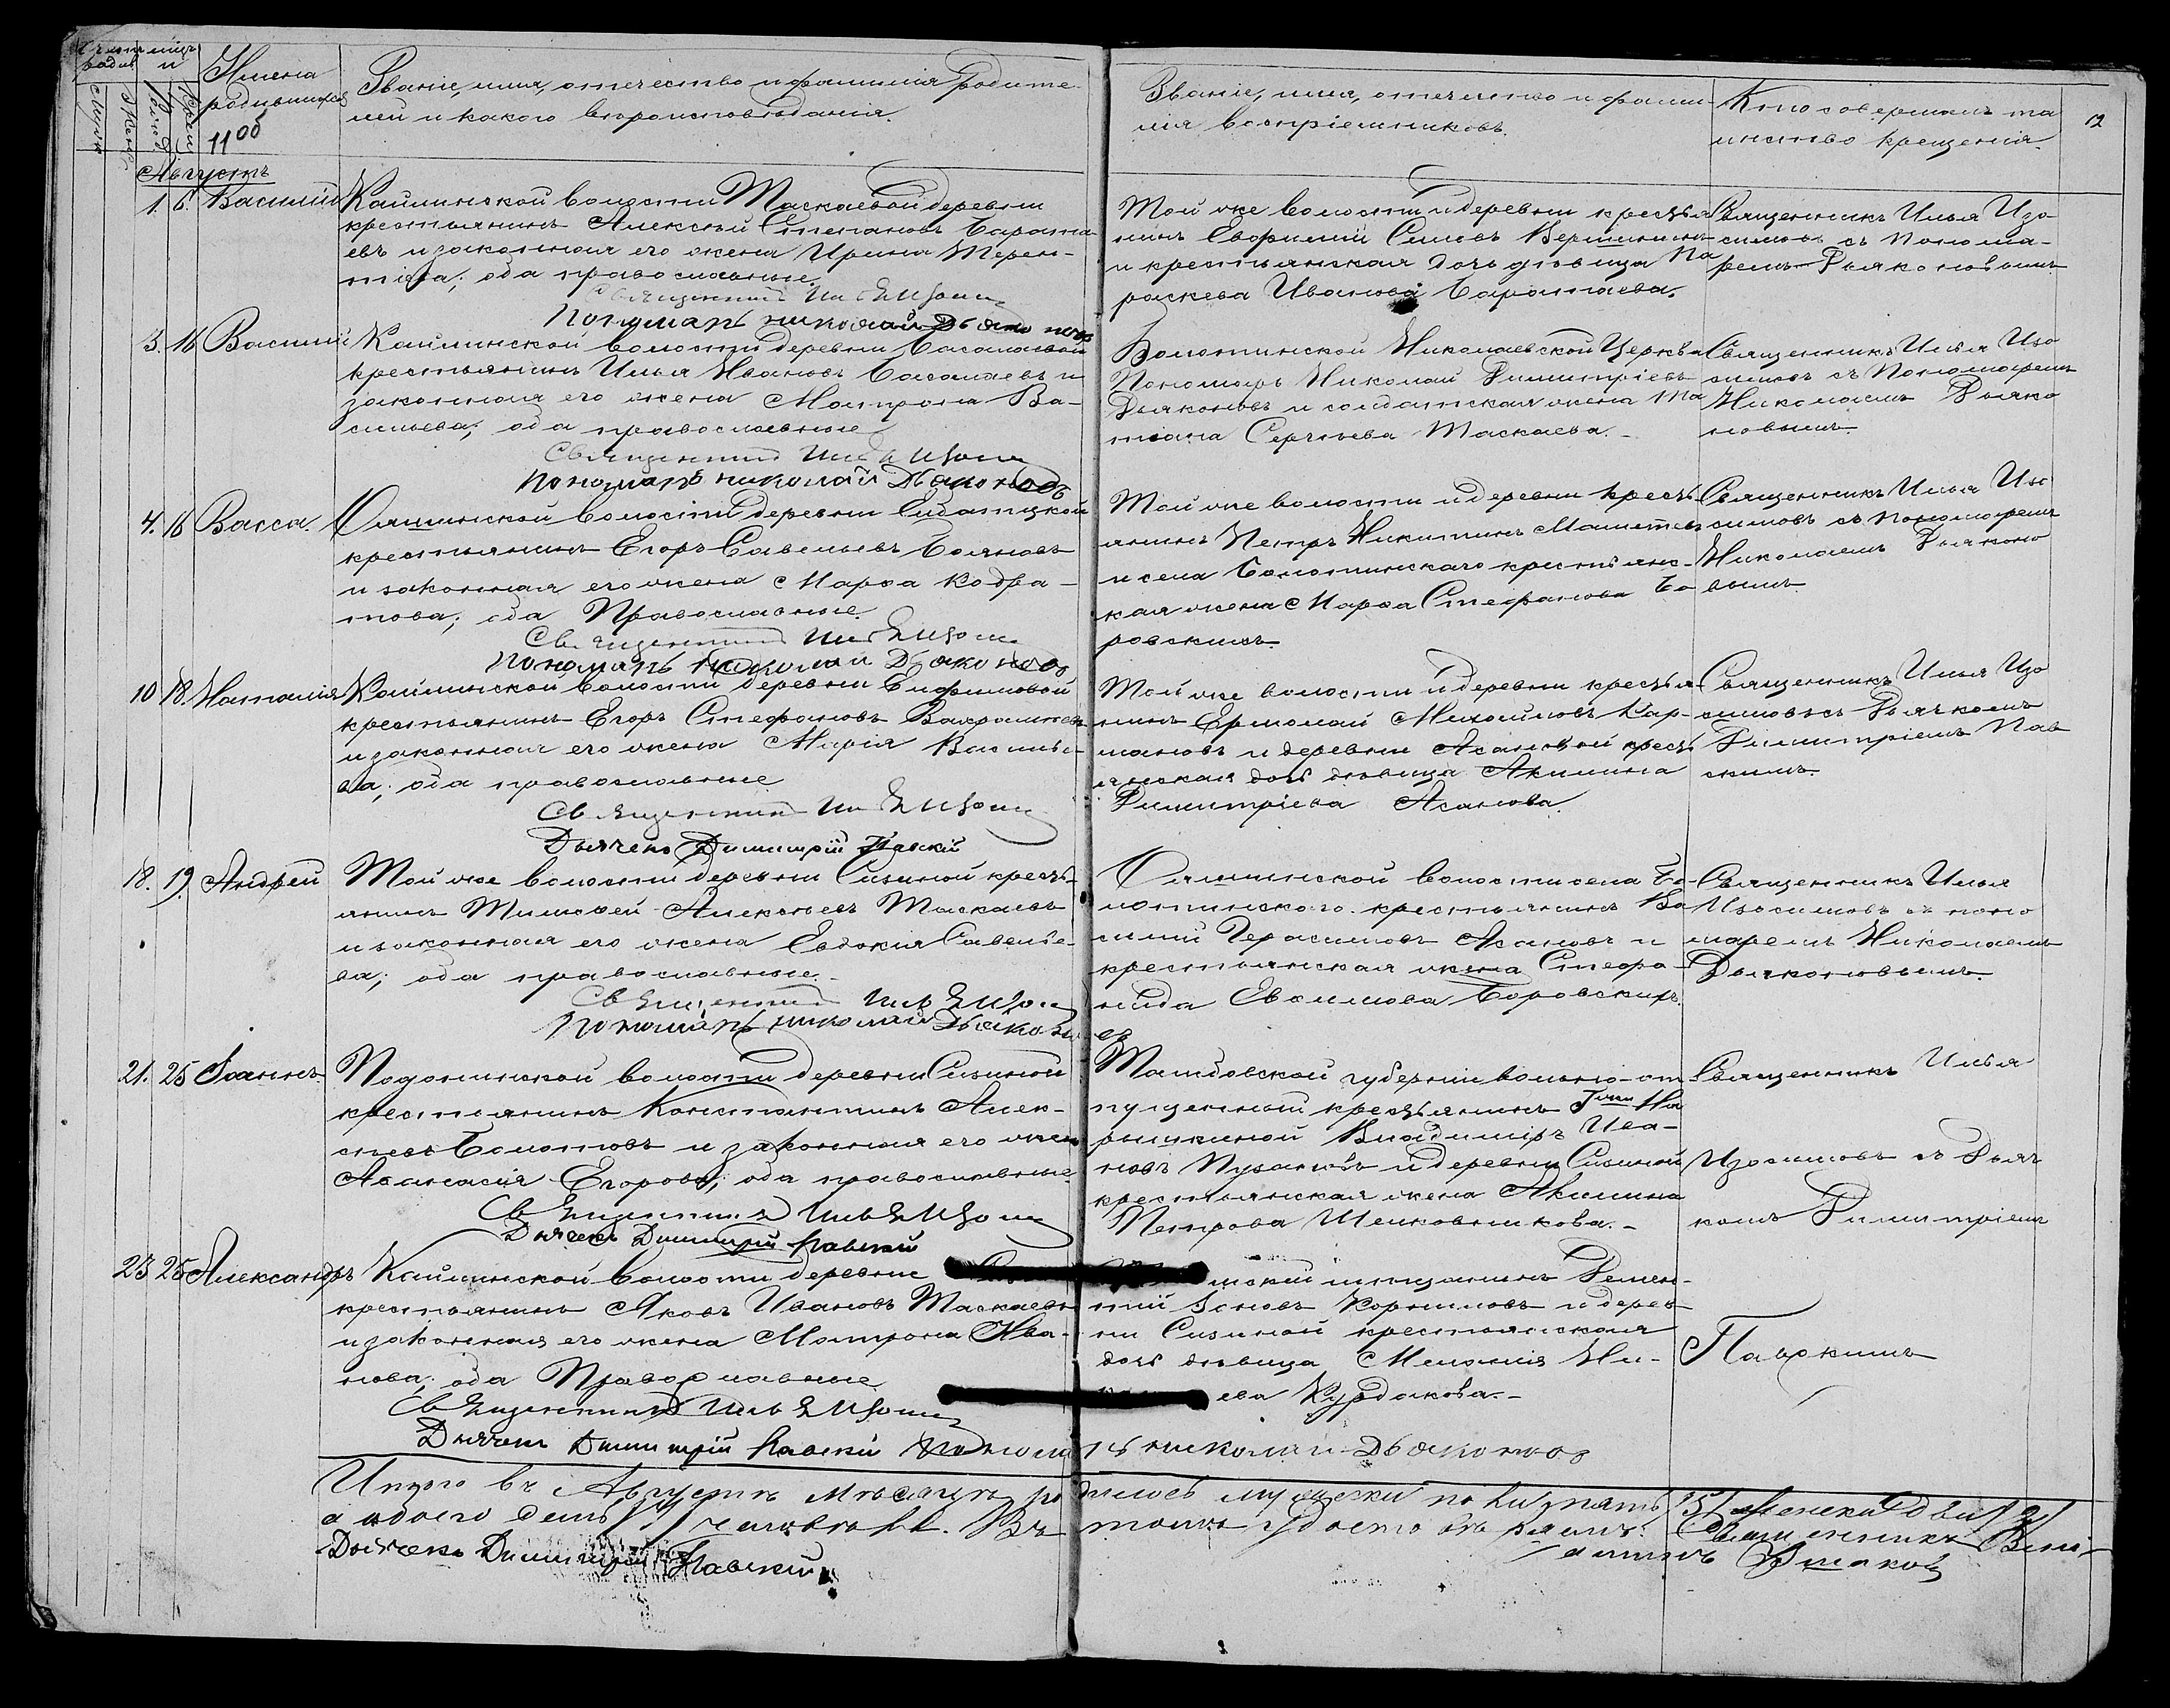 Имена
родившихся
Званіе, имя, отечество и фамилія родите-
лей и какого вѣроисповѣданія.
Званіе, имя, отечество и фами-
лія воспріемниковъ.
Кто совершалъ та
инство крещенія.
12
Августъ
1. 6. Василій
Кайлинской волости Таскаевой деревни
крестьянинъ Алексѣй Степановъ Барата-
евъ и законная его жена Ирина Терен-
тіева; оба православные.
Священникъ Илья Изоси
Пономарь Николай Дьяконовъ
Той же волости и деревни крестья
нинъ Евфимій Силовъ Вершининъ
и крестьянская дочь дѣвица Па
раскева Иванова Баратаева.
Священникъ Илья Изо-
симовъ съ понома-
ремъ Дьяконовымъ
3. 16 Василій
Кайлинской волости деревни Басалаевой
крестьянинъ Илья Ивановъ Басалаевъ и
законная его жена Матрона Ва-
сильева; оба православные
Священникъ Илья Изоси
Пономарь Николай Дьяконовъ
Болотинской Николаевской Церкви
Пономарь Николай Димитріевъ
Дьяконовъ и солдатская жена Та
тіана Сергѣева Таскаева.
Священникъ Илья Изо
симовъ съ Пономаремъ
Николаемъ Дьяко
новымъ.
4. 16 Васса.
Ояшинской волости деревни
крестьянинъ Егоръ Савельевъ Бояновъ
и законная его жена Марѳа Кодра-
това; оба Православные.
Священникъ Илья Изоси
Пономарь Николай Дьяконовъ
Той же волости и деревни кресть
янинъ Петръ Никитинъ
и села Болотинскаго крестьянс-
кая жена Марѳа Стефанова Бо
ровскихъ.
Священникъ Илья Изо
симовъ съ пономаремъ
Николаемъ Дьяконо
вымъ.
10 18. Наталія
Кайлинской волости деревни Елфимовой
крестьянинъ Егоръ Стефановъ Вахрамѣевъ
и законная его жена Марія Василье-
ва; оба православные
Священникъ Илья Изоси
Дьячекъ Димитрій Павскій
Той же волости и деревни крестья-
нинъ Ермолай Михайловъ Кар-
мановъ и деревни Асановой кресть
янская дочь дѣвица Акилина
Димитріева Асанова.
Священникъ Илья Изо
симовъ съ Дьячкомъ
Димитріемъ Пав
скимъ.
18. 19. Андрей
Той же волости деревни Сизиной кресть-
янинъ Тимоѳей Алексѣевъ Таскаевъ
и законная его жена Евдокія Савелье-
ва; оба православные.
Священникъ Илья Изоси
Пономарь Николай Дьяконо
въ
Ояшинской волости села Бо-
лотинскаго крестьянинъ Ва
силій Герасимовъ Асановъ и
крестьянская жена Стефа-
нида Евѳимова Боровскихъ.
Священникъ Илья
Изосимовъ съ поно
маремъ Николаемъ
Дьяконовымъ.
21. 25 Іоаннъ.
волости деревни Сизиной
крестьянинъ Константинъ Алек-
сѣевъ Болотовъ и законная его жена
Аѳанасія Егорова; оба православные.
Священникъ Илья Изоси
Дьячекъ Димитрій Павскій
Тамбовской губерніи вольно-от
пущенный крестьянинъ Гжи На
рышкиной Владиміръ Ива-
новъ Пузановъ и деревни Сизиной
крестьянская жена Акилина
Петрова Шелковникова.
Священникъ Илья
Изосимовъ съ Дьяч
комъ Димитріемъ
Павскимъ
23 25 Александръ
Кайлинской волости деревни
крестьянинъ Яковъ Ивановъ Таскаевъ
и законная его жена Матрона Ива-
нова; оба Православные.
Священникъ Илья Изоси
Дьячекъ Димитрій Павскій Пономарь Николай Дьяконовъ
мѣщанинъ Демен-
тій Корниловъ и дерев-
ни Сизиной крестьянская
дочь дѣвица Меланія Ни-
ева Курдакова.
Итого въ Августѣ мѣсяцѣ родилось мужеска пола пять /5/ женска два /2/
а обоего семь /7/ человѣкъ. Въ томъ удостовѣряемъ: Священникъ
Дьячекъ Димитрій Павскій